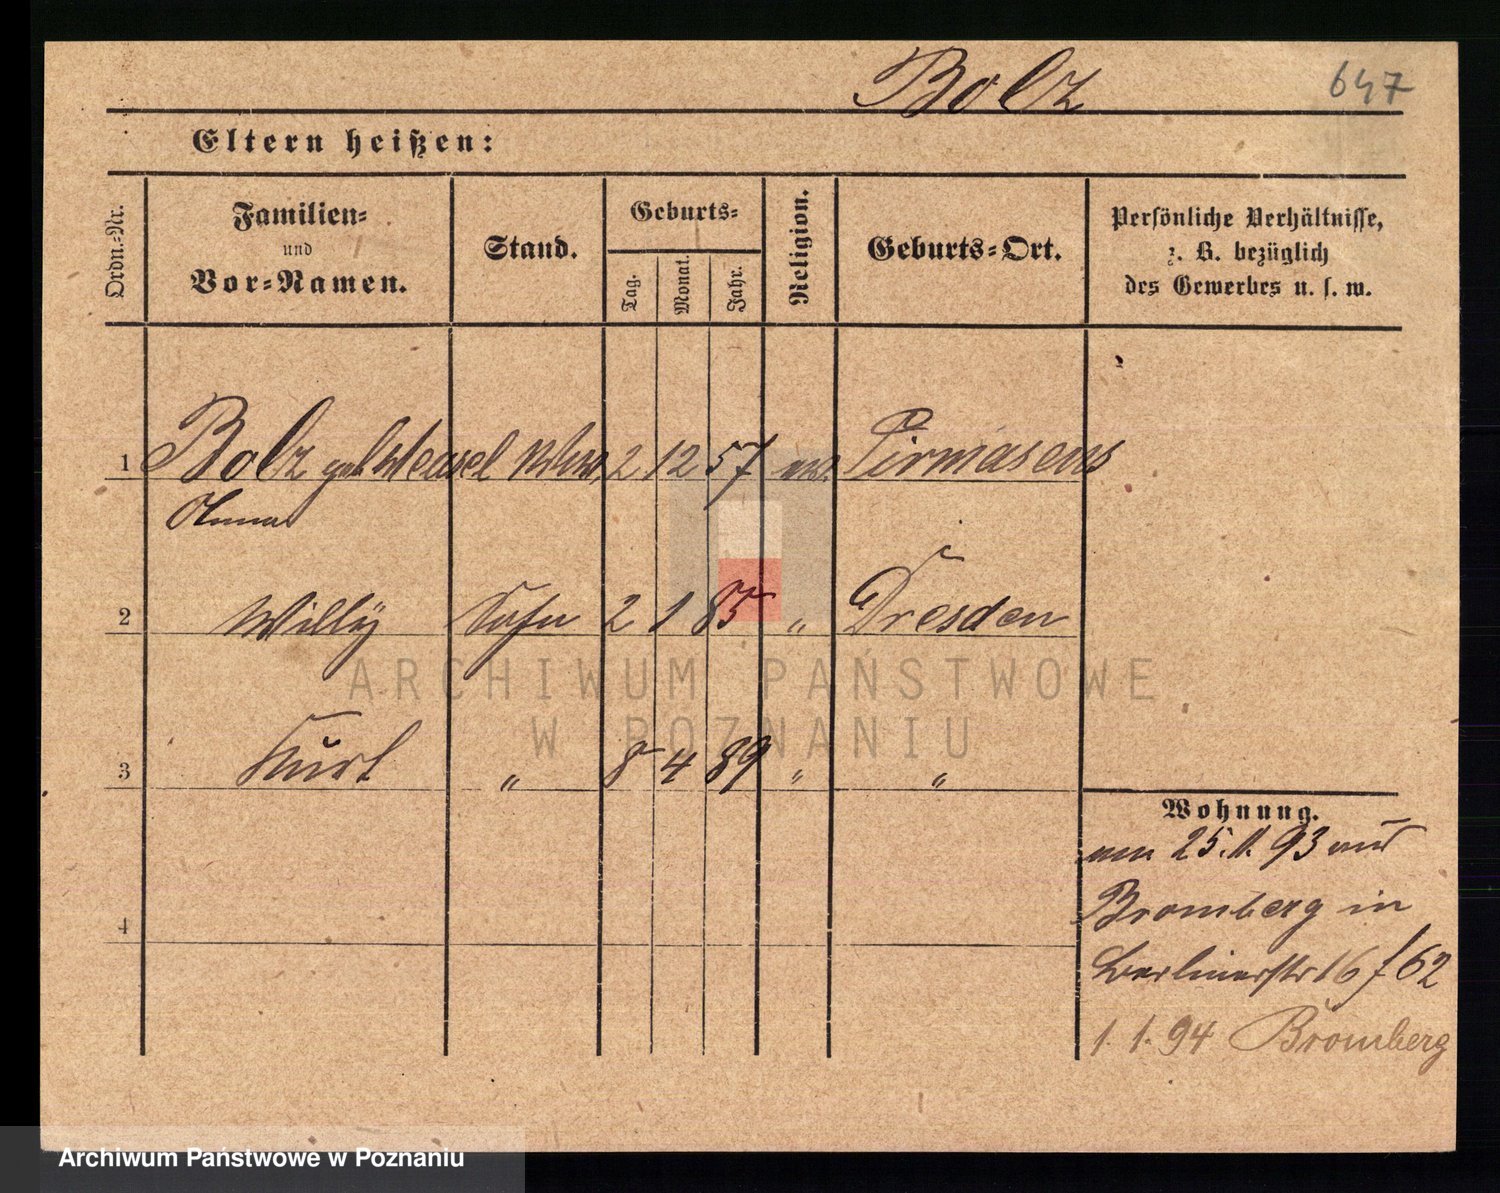 Bolz
647
Eltern heißen:
Ordn.-Nr.
Familien-
und
Vor-Namen.
Stand.
Geburts-
Tag.
Monat.
Jahr.
Religion.
Geburts-Ort.
Persönliche Verhältnisse,
z. B. bezüglich
des Gewerbes u. s. w.
1 Bolz geb 2 12 57 Pirmasens
2 Willÿ Sohn 2 1 85 " Dresden
3 Kurt " 8 4 89 " "
4
Wohnung.
am 25.11.93 aus
Bromberg in
Berlinerstr 16 f 62
1.1.94 Bromberg
ARCHIWUM PAŃSTWOWE
W POZNANIU
Archiwum Państwowe w Poznaniu